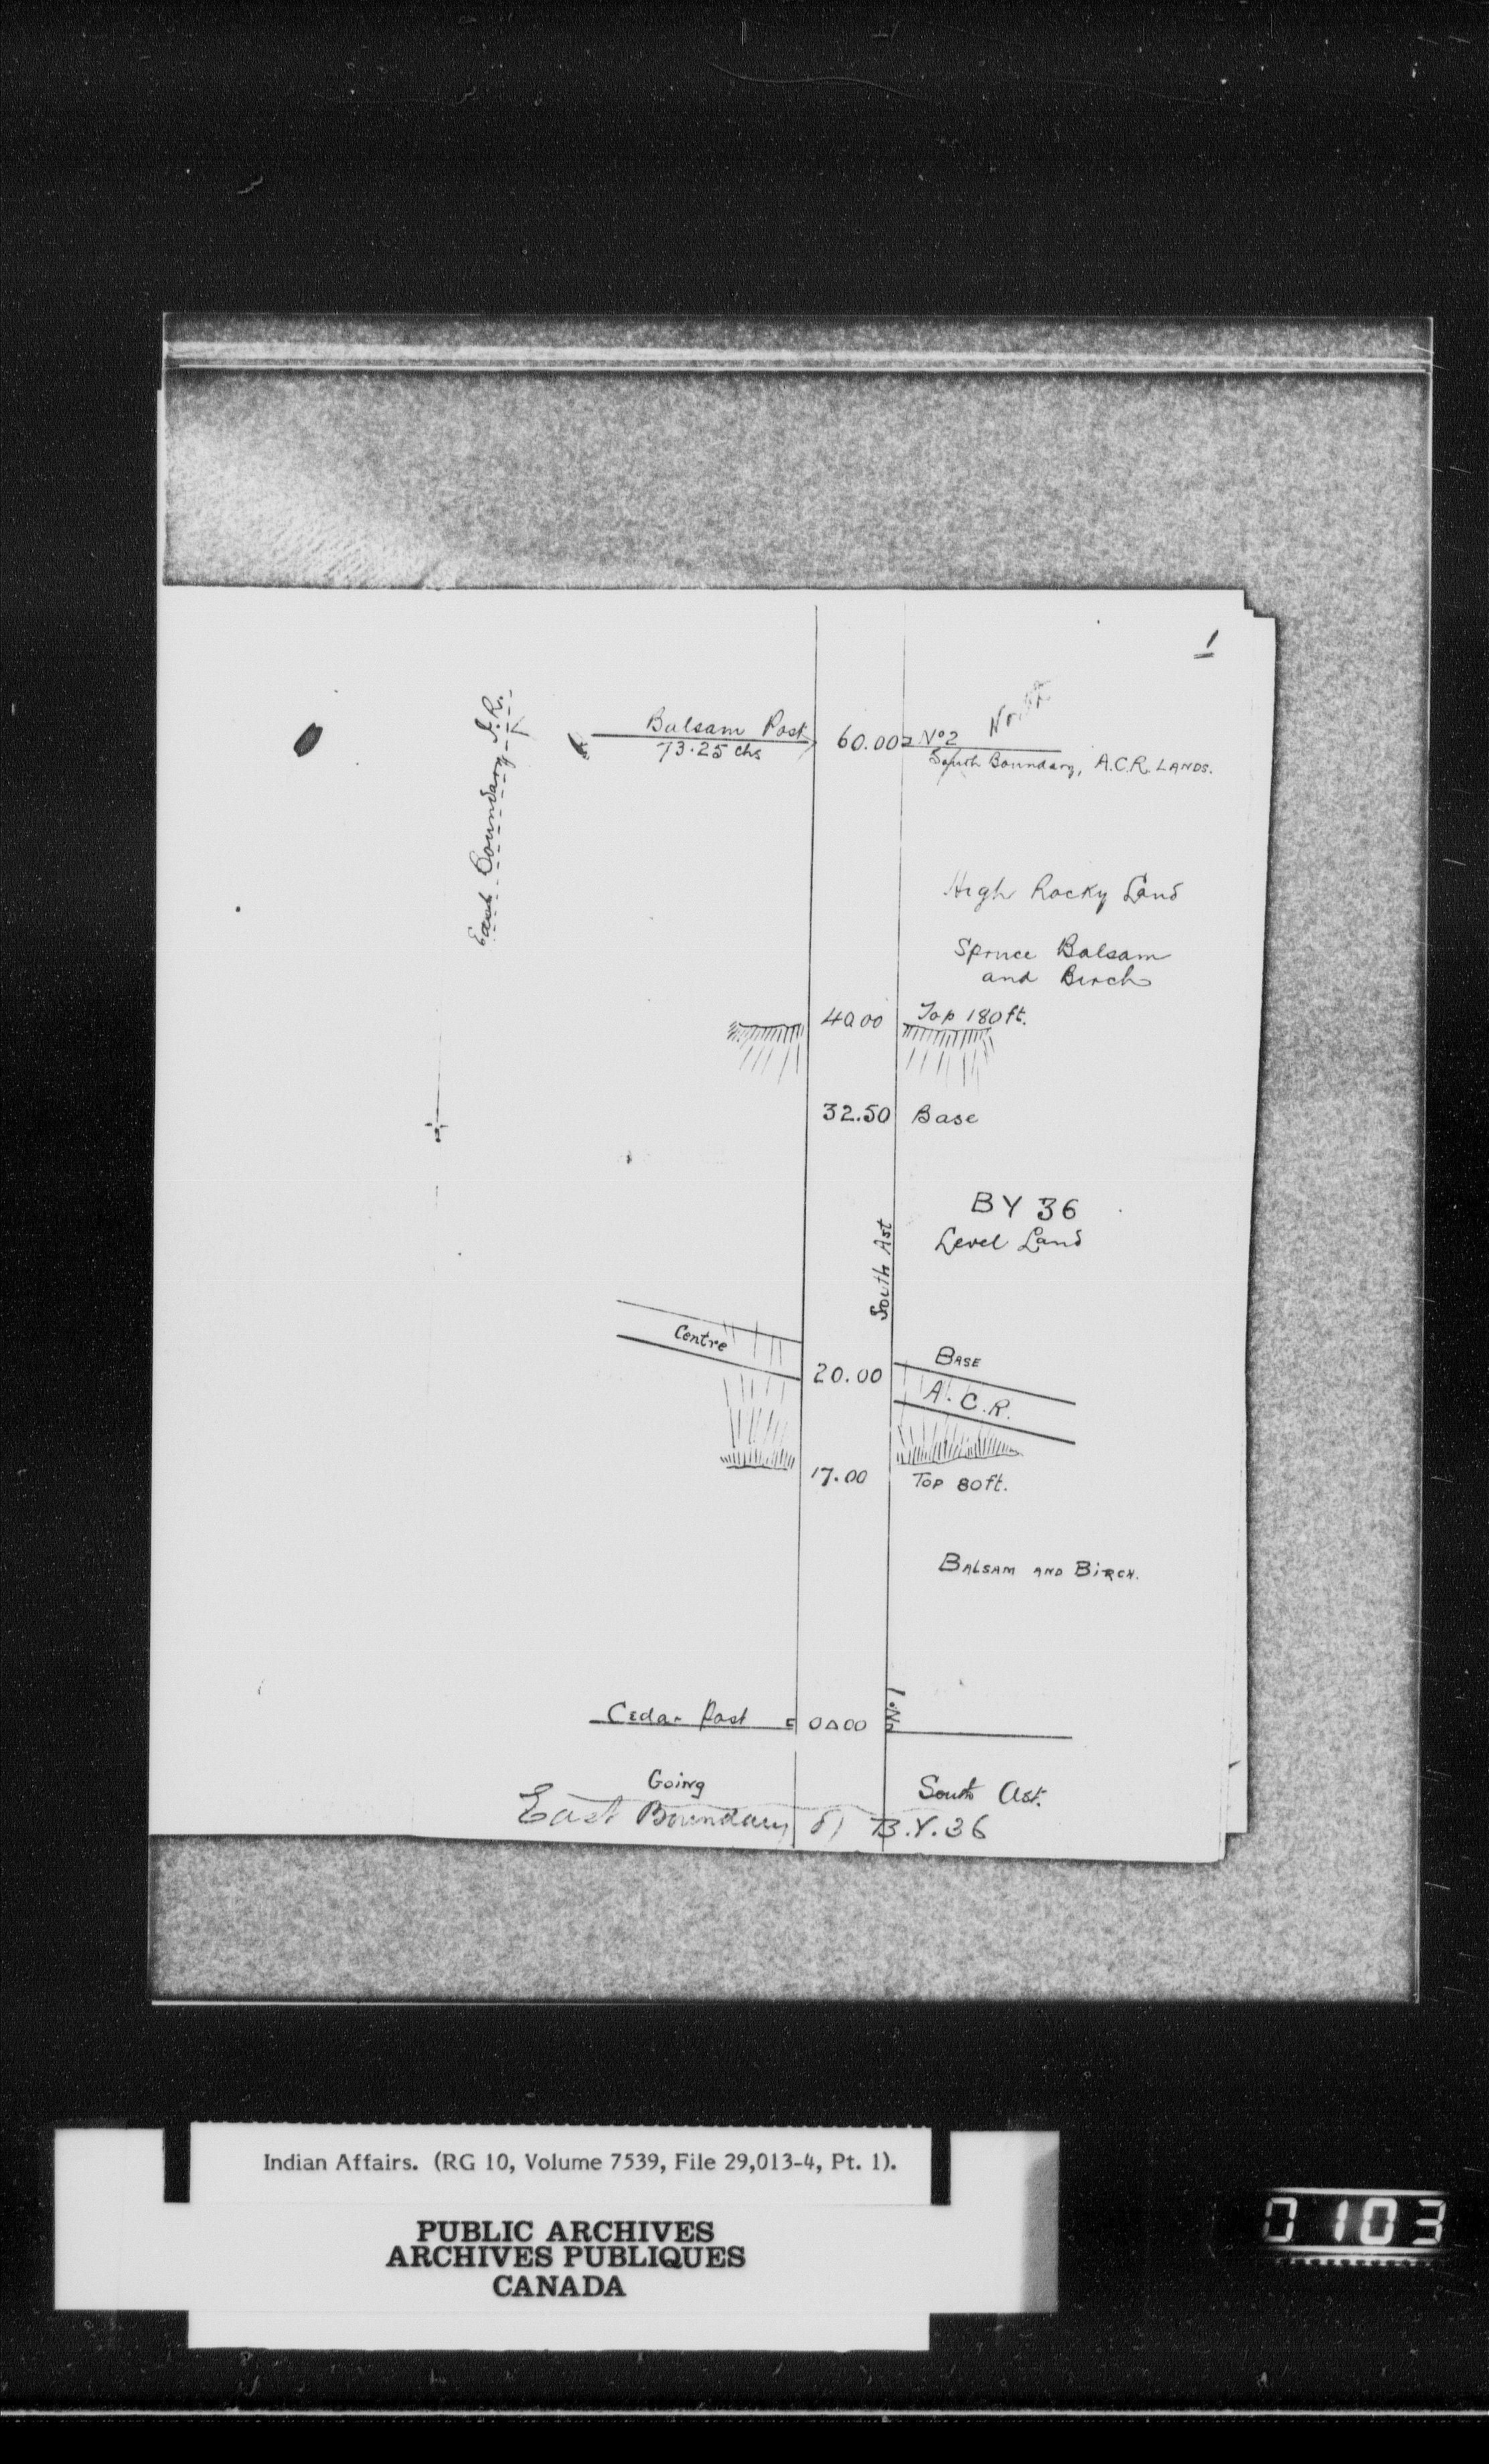 1
North
Balsam Post 60.00 No2
73.25 chs
South Boundary, A.C.R. LANDS.
East Boundary I.R.
High Rocky Land
Spruce Balsam
and Birch
40.00 Top 180 ft.
32.50 Base
BY 36
Level Land
South Ast
Centre
BASE
20.00
A.C.R.
17.00 TOP 80 ft.
BALSAM AND BIRCH.
No 1
Cedar Post 0.00
Going South Ast.
East Boundary of B.Y.36
Indian Affairs. (RG 10, Volume 7539, File 29,013-4, Pt. 1).
PUBLIC ARCHIVES
ARCHIVES PUBLIQUES
CANADA
0103